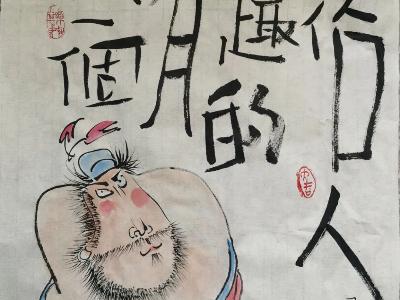 一個
有
趣的
俗人